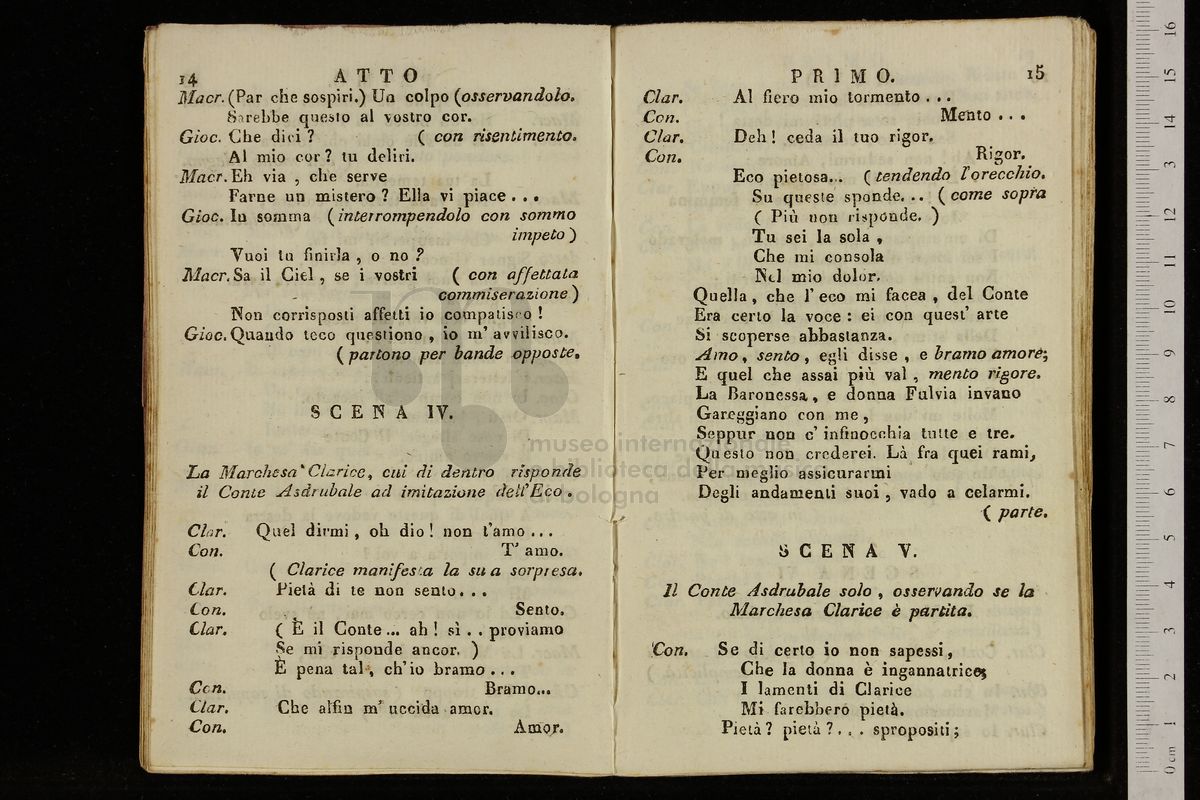 14 ATTO
Macr. (Par che sospiri.) Un colpo (osservandolo.
Sarebbe questo al vostro cor.
Gioc. Che dici ? ( con risentimento.
Al mio cor ? tu deliri.
Macr. Eh via , che serve
Farne un mistero ? Ella vi piace . . .
Gioc. In somma (interrompendolo con sommo
impeto )
Vuoi tu finirla , o no ?
Macr. Sa il Ciel , se i vostri ( con affettata
commiserazione )
Non corrisposti affetti io compatisco !
Gioc. Quando teco questiono , io m' avvilisco.
( partono per bande opposte.
SCENA IV.
La Marchesa Clarice, cui di dentro risponde
il Conte Asdrubale ad imitazione dell'Eco .
Clar. Quel dirmi , oh dio ! non t'amo . . .
Con. T' amo.
( Clarice manifesta la sua sorpresa.
Clar. Pietà di te non sento. . .
Con. Sento.
Clar. ( È il Conte ... ah ! sì . . proviamo
Se mi risponde ancor. )
È pena tal , ch'io bramo . . .
Con. Bramo...
Clar. Che alfin m' uccida amor.
Con. Amor.
PRIMO. 15
Clar. Al fiero mio tormento . . .
Con. Mento . . .
Clar. Deh ! ceda il tuo rigor.
Con. Rigor.
Eco pietosa... ( tendendo l'orecchio.
Su queste sponde. . . ( come sopra
( Più non risponde. )
Tu sei la sola ,
Che mi consola
Nel mio dolor.
Quella , che l' eco mi facea , del Conte
Era certo la voce : ei con quest' arte
Si scoperse abbastanza.
Amo , sento , egli disse , e bramo amore;
E quel che assai più val , mento rigore.
La Baronessa , e donna Fulvia invano
Gareggiano con me ,
Seppur non c' infinocchia tutte e tre.
Questo non crederei. Là fra quei rami,
Per meglio assicurarmi
Degli andamenti suoi , vado a celarmi.
( parte.
SCENA V.
Il Conte Asdrubale solo , osservando se la
Marchesa Clarice è partita.
Con. Se di certo io non sapessi ,
Che la donna è ingannatrice,
I lamenti di Clarice
Mi farebbero pietà.
Pietà ? pietà ? . . . spropositi ;
museo internazionale
e biblioteca della musica
di bologna
0 cm 1 2 3 4 5 6 7 8 9 10 11 12 13 14 15 16